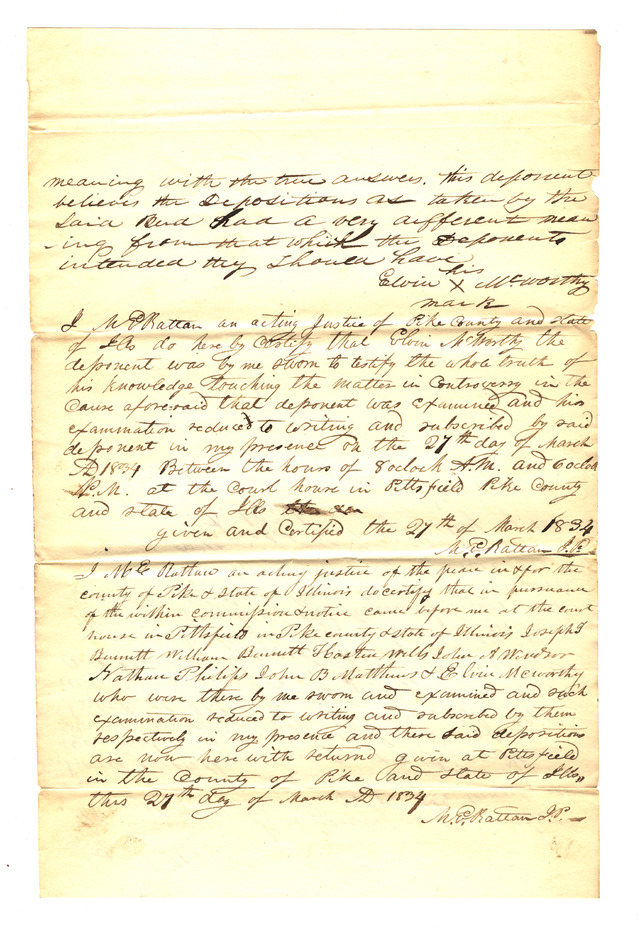 meaning with the true answers. this deponent
believes the Depositions as taken by the
said Bird had a very different mean
-ing from that which the Deponents
intended they Should have
his
Elvin X McWorthy
mark
I M E Rattan an acting Justice of Pike County and State
of Ills do here by Certify that Elvin McWorthy the
deponent was by me sworn to testify the whole truth of
his knowledge touching the matter in Controversy in the
Cause aforesaid that deponent was examined and his
examination reduced to writing and subscribed by said
deponent in my presence on the 27th day of March
AD 1834 Between the hours of 8 oclock A.M. and 6 oclock
P.M. at the Court house in Pittsfield Pike County
and state of Ills
given and Certified the 27th of March 1834
M. E. Rattan J.P.
I M E Rattan an acting justice of the peace in & for the
county of Pike & State of Illinois do certify that in pursuance
of the within commission & notice came before me at the court
house in Pittsfield in Pike county & state of Illinois Joseph T
Bennett William Bennett Wells John A Windsor
Nathan Philips John B Matthews & Elvin Mcworthy
who were there by me sworn and examined and such
examination reduced to writing and subscribed by them
respectively in my presence and these said depositions
are now here with returned given at Pittsfield
in the County of Pike and State of Ills
this 27th day of March AD 1834
M. E. Rattan J.P.